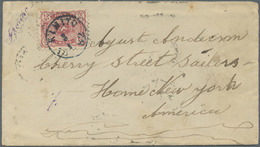 August Anderson
Cherry Street Sailers
Home New york
America